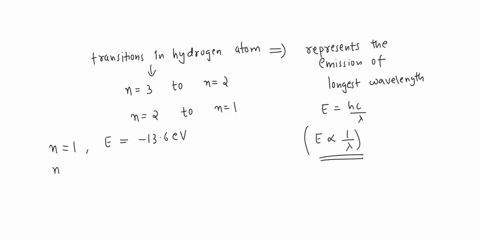 transitions in hydrogen atom ⇒ represents the
emission of
longest wavelength
n = 3 to n = 2
n = 2 to n = 1
E = hc/λ
(E ∝ 1/λ)
n = 1, E = -13.6 eV
n